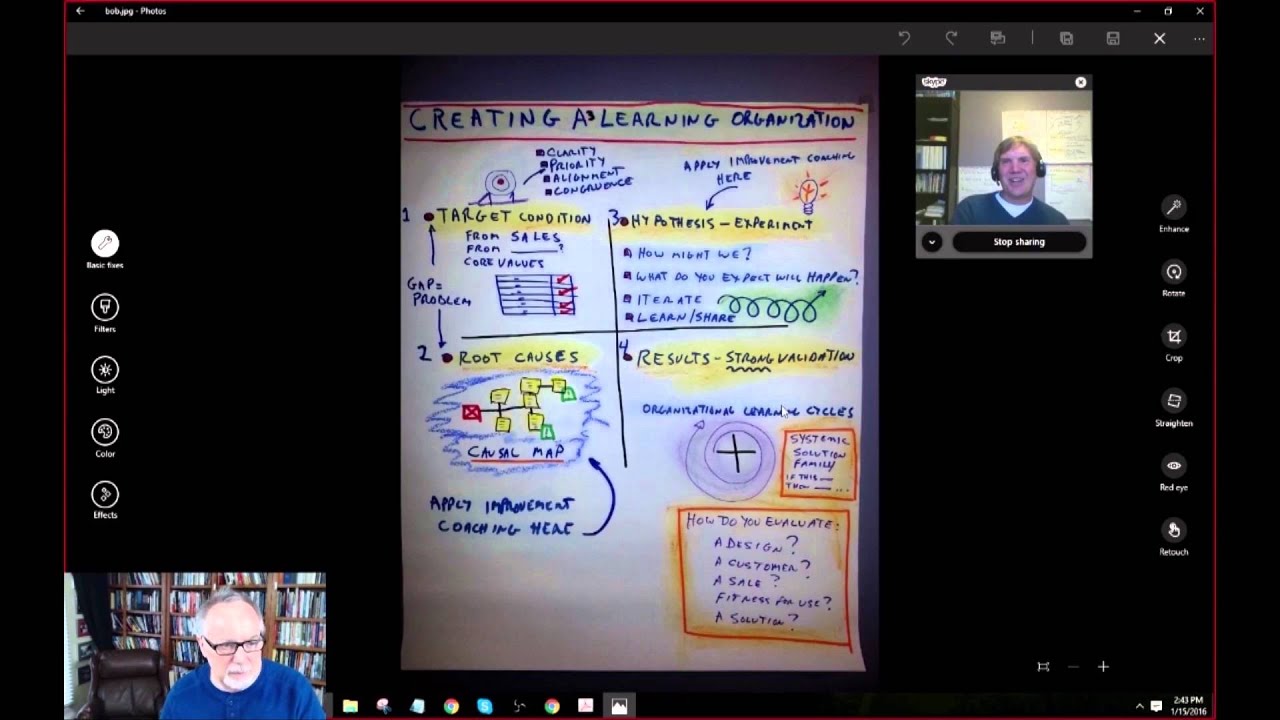 bob.jpg - Photos
skype
Stop sharing
Basic fixes
Filters
Light
Color
Effects
Enhance
Rotate
Crop
Straighten
Red eye
Retouch
CREATING A3 LEARNING ORGANIZATION
CLARITY
PRIORITY
ALIGNMENT
CONGRUENCE
APPLY IMPROVEMENT COACHING
HERE
1 TARGET CONDITION
FROM SALES
FROM ______?
CORE VALUES
GAP=
PROBLEM
2 ROOT CAUSES
CAUSAL MAP
APPLY IMPROVEMENT
COACHING HERE
3 HYPOTHESIS - EXPERIMENT
HOW MIGHT WE?
WHAT DO YOU EXPECT WILL HAPPEN?
ITERATE
LEARN/SHARE
4 RESULTS - STRONG VALIDATION
ORGANIZATIONAL LEARNING CYCLES
SYSTEMIC
SOLUTION
FAMILY
IF THIS —
THEN — ...
HOW DO YOU EVALUATE:
A DESIGN?
A CUSTOMER?
A SALE?
FITNESS FOR USE?
A SOLUTION?
2:43 PM
1/15/2016